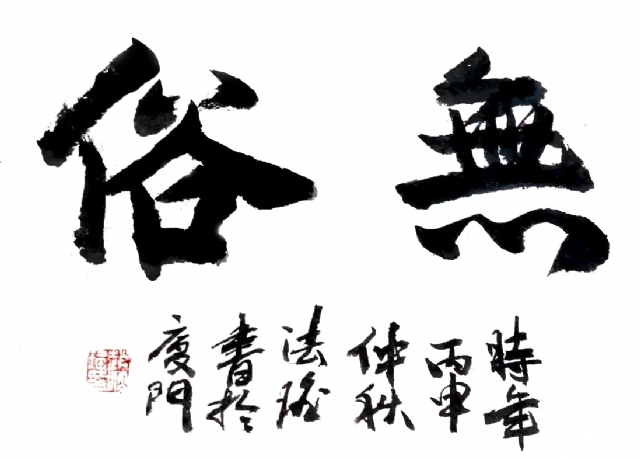 無俗
時年
丙申
仲秋
法瑜
書於
廈門